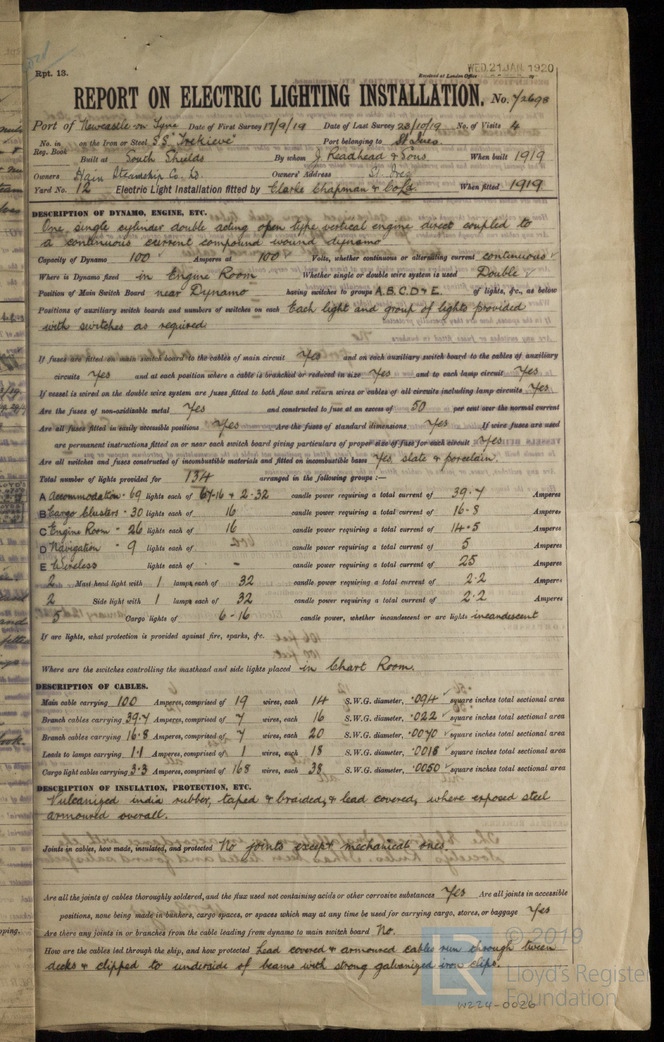 Rpt. 13.
WED. 21 JAN. 1920
Received at London Office
REPORT ON ELECTRIC LIGHTING INSTALLATION. No. 72698
Port of Newcastle on Tyne Date of First Survey 17/9/19 Date of Last Survey 23/10/19 No. of Visits 4
No. in Reg. Book on the Iron or Steel S.S. "Trekieve" Port belonging to St Ives
Built at South Shields By whom J. Readhead & Sons When built 1919
Owners Hain Steamship Co. Ld. Owners' Address St. Ives
Yard No. 12 Electric Light Installation fitted by Clarke Chapman & Co Ld. When fitted 1919
DESCRIPTION OF DYNAMO, ENGINE, ETC.
One, single cylinder double acting open type vertical engine direct coupled to
a continuous current compound wound dynamo
Capacity of Dynamo 100 Amperes at 100 Volts, whether continuous or alternating current continuous
Where is Dynamo fixed in Engine Room Whether single or double wire system is used Double
Position of Main Switch Board near Dynamo having switches to groups A.B.C.D & E. of lights, &c., as below
Positions of auxiliary switch boards and numbers of switches on each Each light and group of lights provided
with switches as required
If fuses are fitted on main switch board to the cables of main circuit Yes and on each auxiliary switch board to the cables of auxiliary
circuits Yes and at each position where a cable is branched or reduced in size Yes and to each lamp circuit Yes
If vessel is wired on the double wire system are fuses fitted to both flow and return wires or cables of all circuits including lamp circuits Yes
Are the fuses of non-oxidizable metal Yes and constructed to fuse at an excess of 50 per cent over the normal current
Are all fuses fitted in easily accessible positions Yes Are the fuses of standard dimensions Yes If wire fuses are used
are permanent instructions fitted on or near each switch board giving particulars of proper size of fuse for each circuit Yes
Are all switches and fuses constructed of incombustible materials and fitted on incombustible bases Yes, slate & porcelain.
Total number of lights provided for 134 arranged in the following groups :—
A Accommodation - 69 lights each of 67-16 & 2-32 candle power requiring a total current of 39.7 Amperes
B Cargo Clusters - 30 lights each of 16 candle power requiring a total current of 16.8 Amperes
C Engine Room - 26 lights each of 16 candle power requiring a total current of 14.5 Amperes
D Navigation - 9 lights each of candle power requiring a total current of 5 Amperes
E Wireless lights each of - candle power requiring a total current of 25 Amperes
2 Mast head light with 1 lamps each of 32 candle power requiring a total current of 2.2 Amperes
2 Side light with 1 lamps each of 32 candle power requiring a total current of 2.2 Amperes
5 Cargo lights of 6-16 candle power, whether incandescent or arc lights incandescent
If arc lights, what protection is provided against fire, sparks, &c.
Where are the switches controlling the masthead and side lights placed in Chart Room.
DESCRIPTION OF CABLES.
Main cable carrying 100 Amperes, comprised of 19 wires, each 14 S.W.G. diameter, .094 square inches total sectional area
Branch cables carrying 39.7 Amperes, comprised of 7 wires, each 16 S.W.G. diameter, .022 square inches total sectional area
Branch cables carrying 16.8 Amperes, comprised of 7 wires, each 20 S.W.G. diameter, .0070 square inches total sectional area
Leads to lamps carrying 1.1 Amperes, comprised of 1 wires, each 18 S.W.G. diameter, .0018 square inches total sectional area
Cargo light cables carrying 3.3 Amperes, comprised of 168 wires, each 38 S.W.G. diameter, .0050 square inches total sectional area
DESCRIPTION OF INSULATION, PROTECTION, ETC.
Vulcanized india rubber, taped & braided, & lead covered, where exposed steel
armoured overall.
Joints in cables, how made, insulated, and protected No joints except mechanical ones
Are all the joints of cables thoroughly soldered, and the flux used not containing acids or other corrosive substances Yes Are all joints in accessible
positions, none being made in bunkers, cargo spaces, or spaces which may at any time be used for carrying cargo, stores, or baggage Yes
Are there any joints in or branches from the cable leading from dynamo to main switch board No.
How are the cables led through the ship, and how protected Lead covered & armoured cables run through tween
decks & clipped to underside of beams with strong galvanized iron clips.
© 2019
Lloyd's Register
Foundation
W224-0026